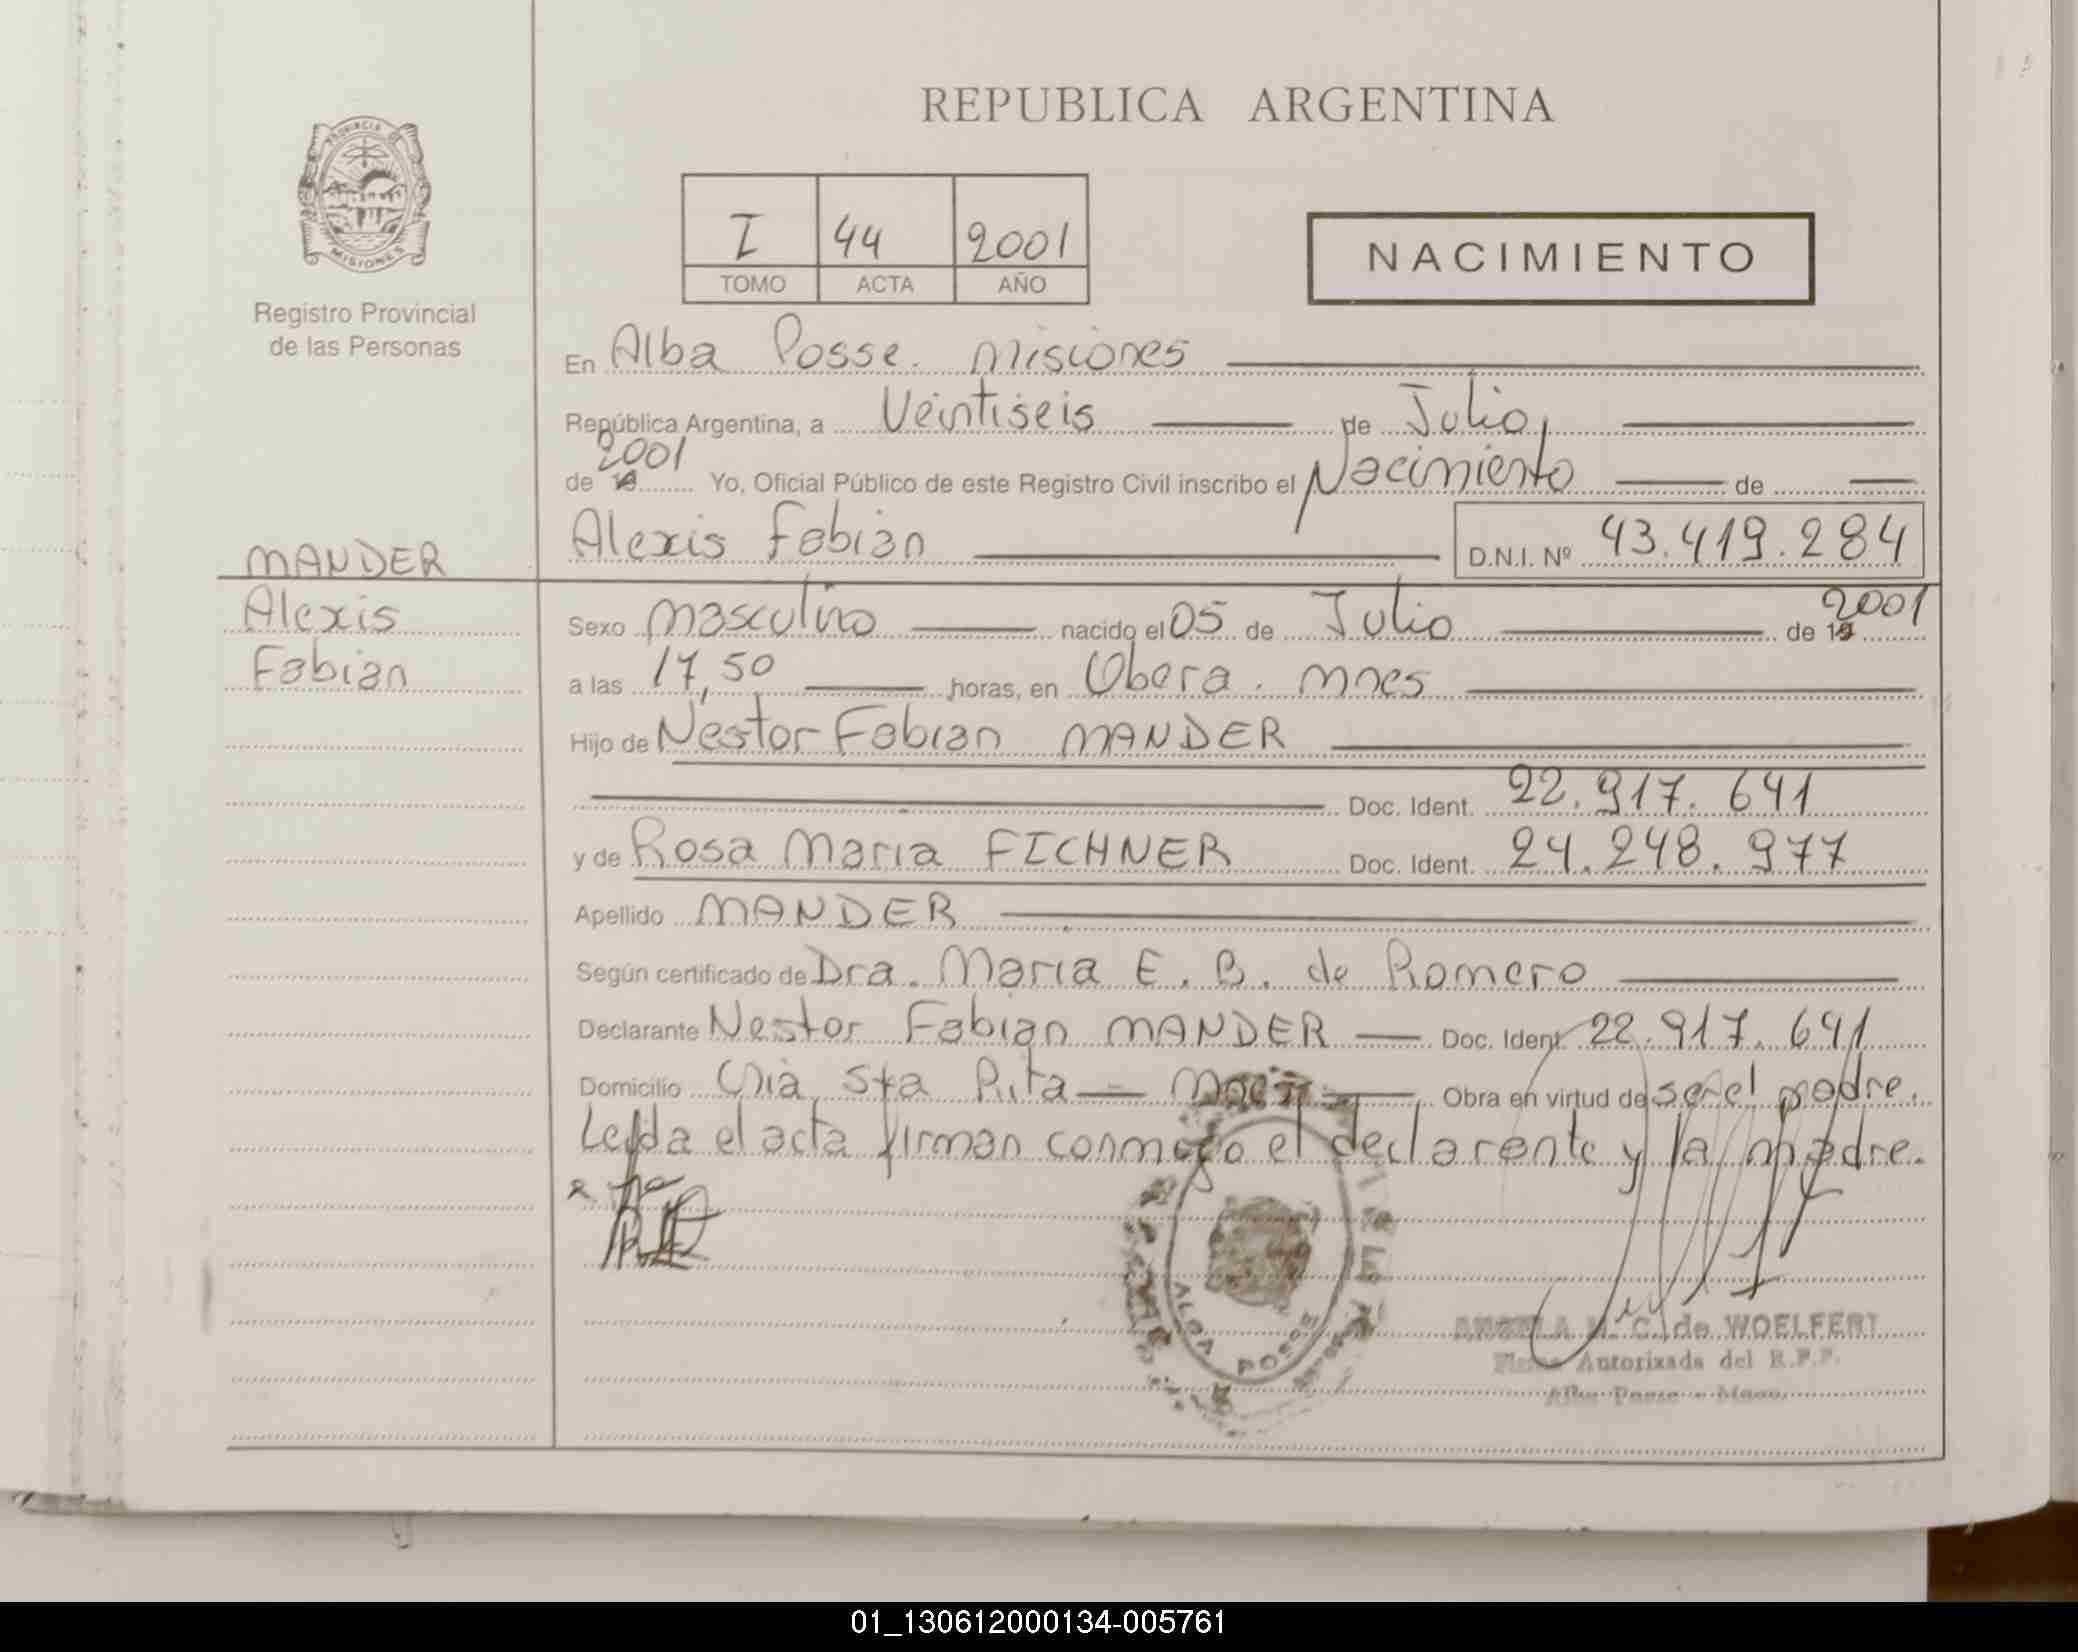 REPUBLICA ARGENTINA
PROVINCIA DE MISIONES
Registro Provincial
de las Personas
I 44 2001
TOMO ACTA AÑO
NACIMIENTO
En Alba Posse. Misiones
República Argentina, a Veintiseis de Julio,
de 19 2001 Yo, Oficial Público de este Registro Civil inscribo el Nacimiento de
Alexis Fabian D.N.I. Nº 43.419.284
MANDER
Alexis
Fabian
Sexo masculino nacido el 05 de Julio de 19 2001
a las 17,50 horas, en Obera. Mnes
Hijo de Nestor Fabian MANDER
Doc. Ident. 22.917.641
y de Rosa Maria FICHNER Doc. Ident. 24.248.977
Apellido MANDER
Según certificado de Dra. Maria E. B. de Romero
Declarante Nestor Fabian MANDER Doc. Ident. 22.917.641
Domicilio Cnia Sta Rita Obra en virtud de ser el padre.
Leida el acta firman conmigo el declarente y la madre.
ALBA POSSE
ANGELA M. C. de WOELFERT
Firma Autorizada del R.P.P.
Alba Posse - Mnes.
01_130612000134-005761